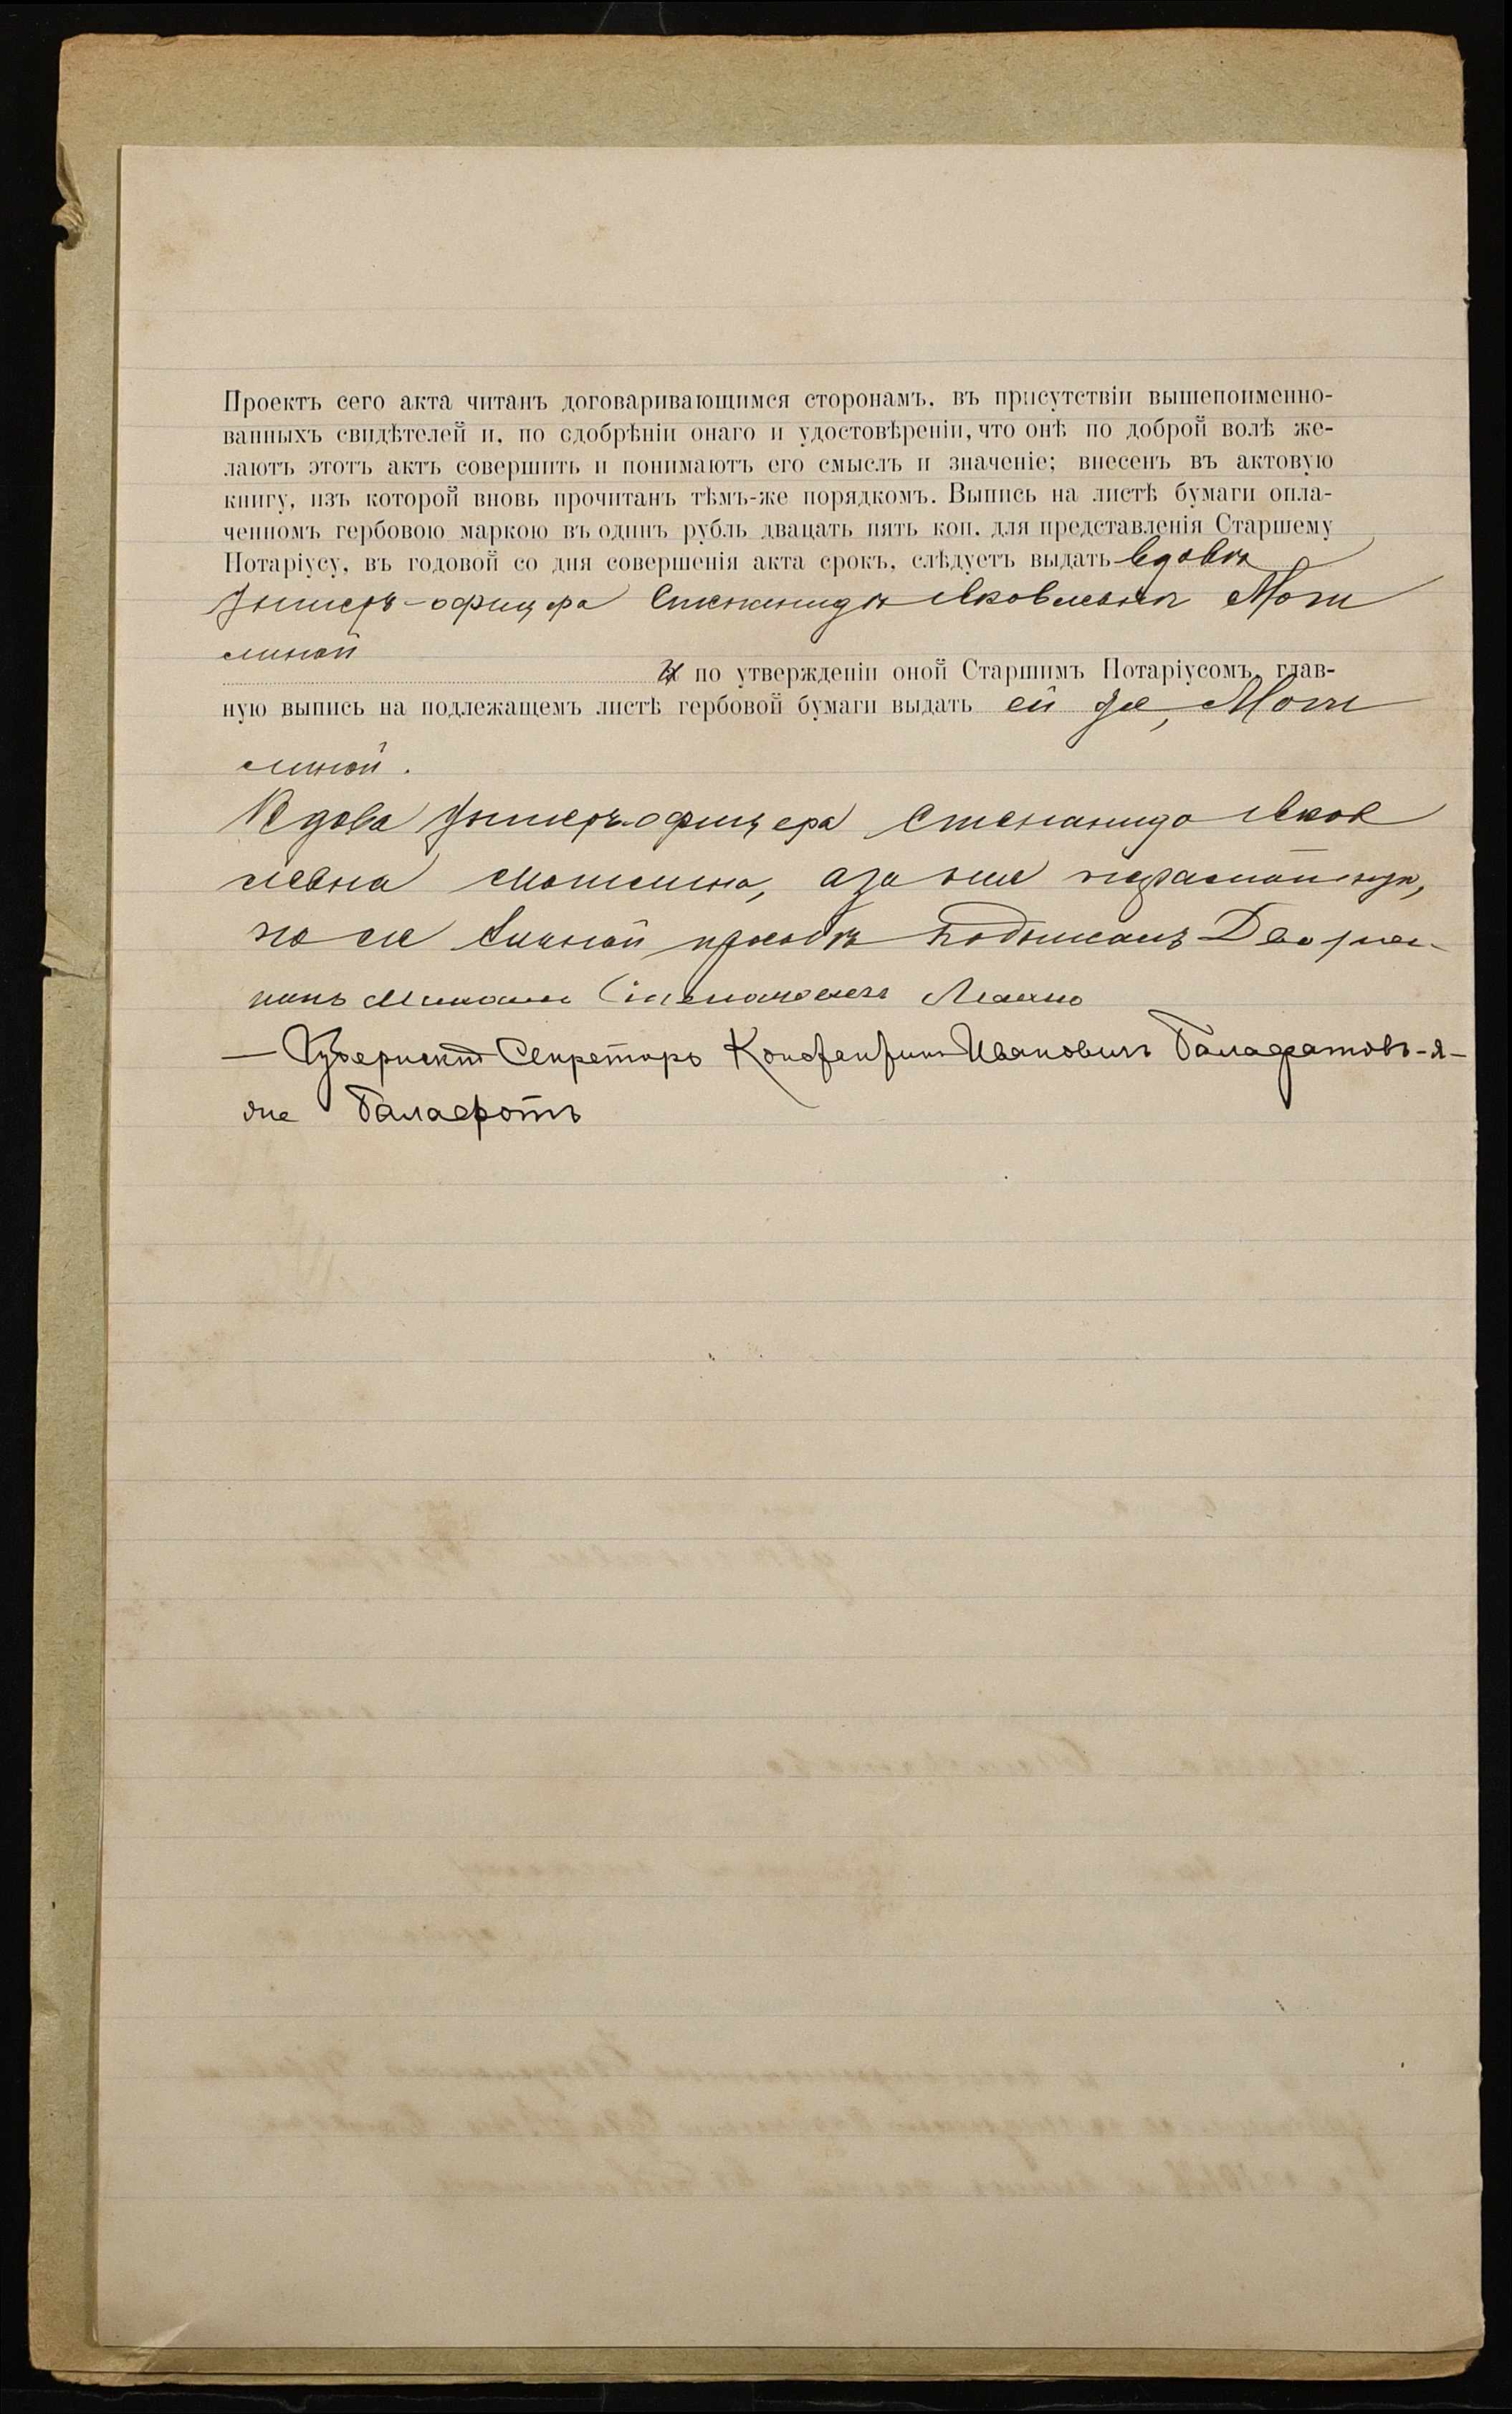 Проектъ сего акта читанъ договаривающимся сторонамъ, въ присутствіи вышепоименно-
ванныхъ свидѣтелей и, по одобрѣніи онаго и удостовѣреніи, что онѣ по доброй волѣ же-
лаютъ этотъ актъ совершить и понимаютъ его смыслъ и значеніе; внесенъ въ актовую
книгу, изъ которой вновь прочитанъ тѣмъ-же порядкомъ. Выпись на листѣ бумаги опла-
ченномъ гербовою маркою въ одинъ рубль двацать пять коп. для представленія Старшему
Нотаріусу, въ годовой со дня совершенія акта срокъ, слѣдуетъ выдать вдовѣ
Унтеръ-офицера Степанидѣ Яковлевнѣ Моти
линой
И по утвержденіи оной Старшимъ Нотаріусомъ, глав-
ную выпись на подлежащемъ листѣ гербовой бумаги выдать ей же, Моти
линой.
Вдова Унтеръ-офицера Степанида Яков
левна Мотилина, а за нее неграмотную,
по ея личной просьбѣ подписалъ Дворя-
нинъ Степановичъ
— Губернскій Секретарь Константинъ Ивановичъ Балафатовъ-я-
же Балафотъ